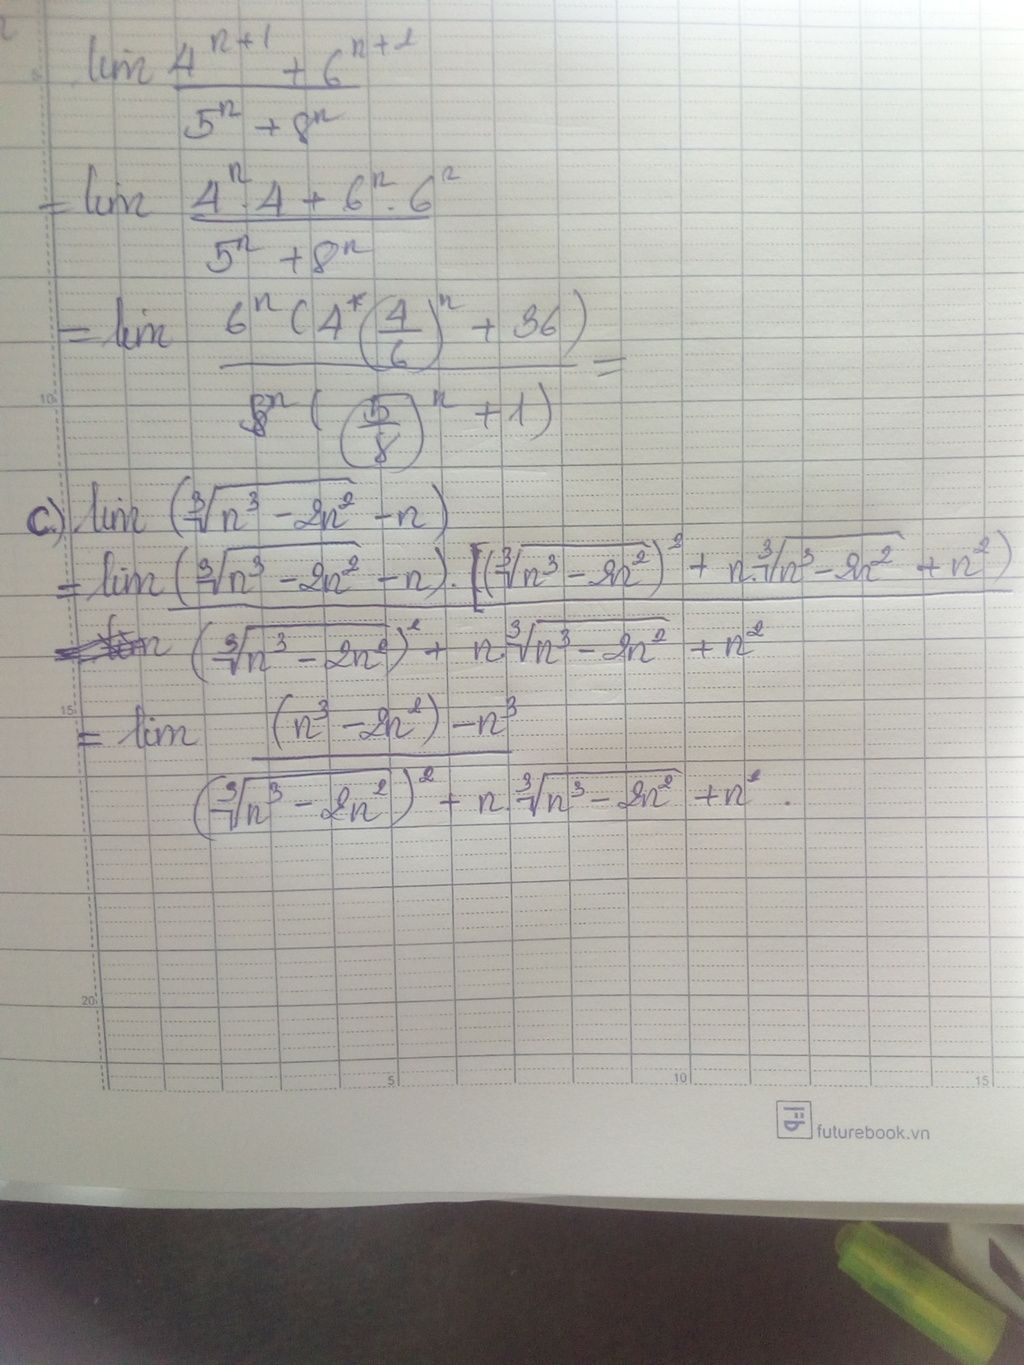 lim (4^{n+1} + 6^{n+2}) / (5^n + 8^n)
= lim (4^n . 4 + 6^n . 6^2) / (5^n + 8^n)
= lim 6^n (4 * (4/6)^n + 36) / 8^n ((5/8)^n + 1) =
10
c.) lim (∛(n^3 - 2n^2) - n)
= lim (∛(n^3 - 2n^2) - n) . [(∛(n^3 - 2n^2))^2 + n.∛(n^3 - 2n^2) + n^2) / (∛(n^3 - 2n^2))^2 + n.∛(n^3 - 2n^2) + n^2
15
= lim (n^3 - 2n^2) - n^3 / (∛(n^3 - 2n^2))^2 + n.∛(n^3 - 2n^2) + n^2 .
20
5 10 15
futurebook.vn